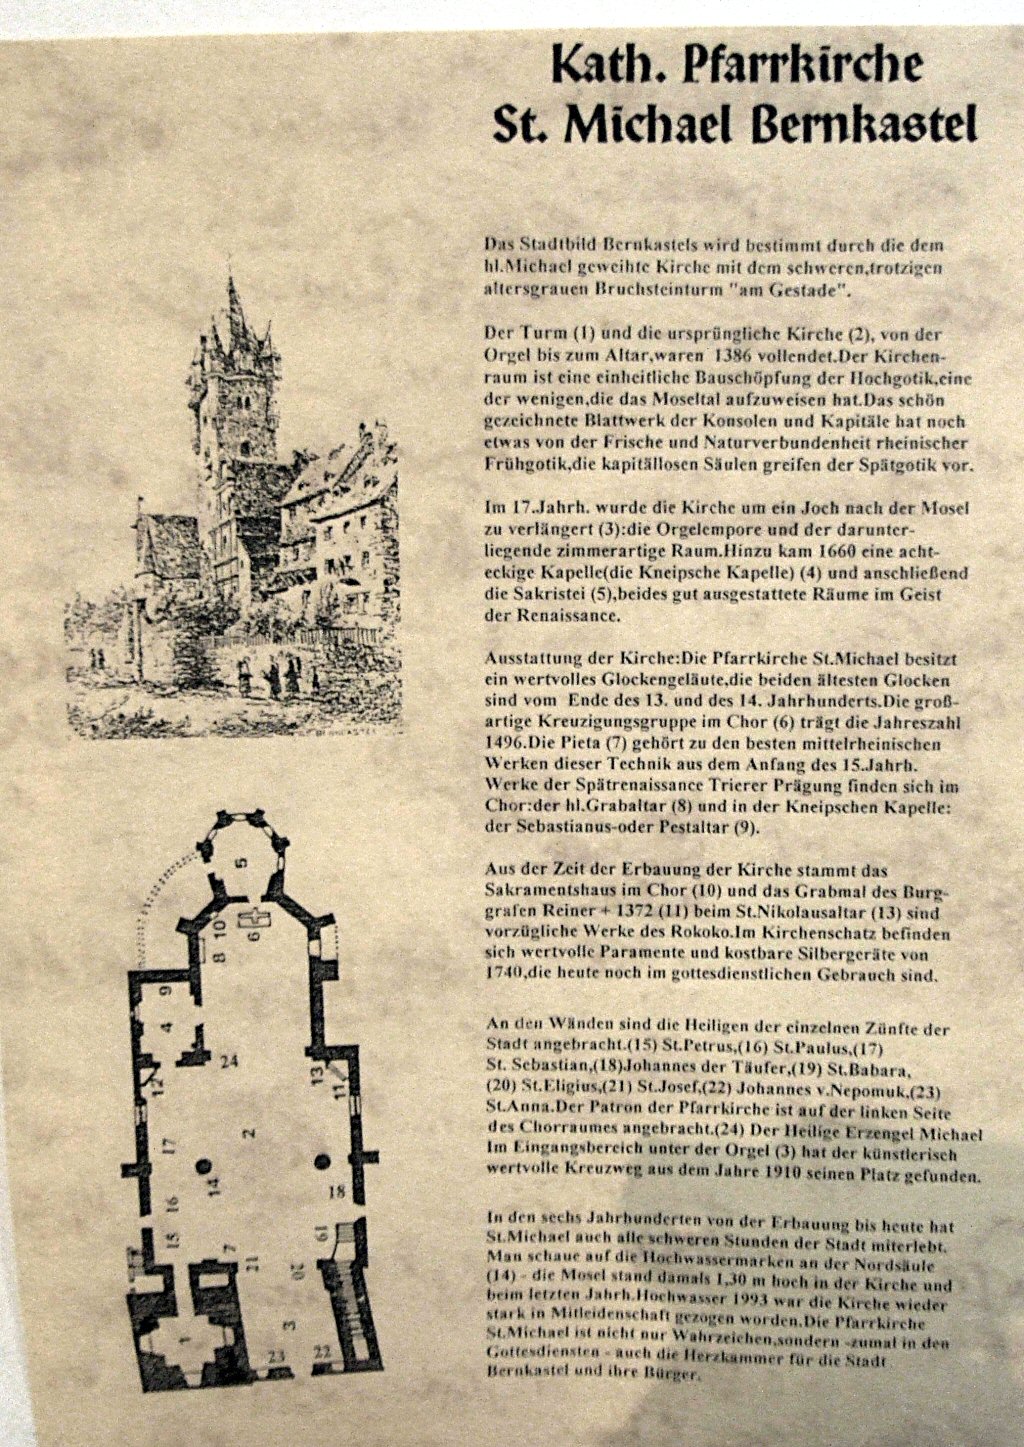 Kath. Pfarrkirche
St. Michael Bernkastel
Das Stadtbild Bernkastels wird bestimmt durch die dem
hl.Michael geweihte Kirche mit dem schweren,trotzigen
altersgrauen Bruchsteinturm "am Gestade".
Der Turm (1) und die ursprüngliche Kirche (2), von der
Orgel bis zum Altar,waren 1386 vollendet.Der Kirchen-
raum ist eine einheitliche Bauschöpfung der Hochgotik,eine
der wenigen,die das Moseltal aufzuweisen hat.Das schön
gezeichnete Blattwerk der Konsolen und Kapitäle hat noch
etwas von der Frische und Naturverbundenheit rheinischer
Frühgotik,die kapitällosen Säulen greifen der Spätgotik vor.
Im 17.Jahrh. wurde die Kirche um ein Joch nach der Mosel
zu verlängert (3):die Orgelempore und der darunter-
liegende zimmerartige Raum.Hinzu kam 1660 eine acht-
eckige Kapelle(die Kneipsche Kapelle) (4) und anschließend
die Sakristei (5),beides gut ausgestattete Räume im Geist
der Renaissance.
Ausstattung der Kirche:Die Pfarrkirche St.Michael besitzt
ein wertvolles Glockengeläute,die beiden ältesten Glocken
sind vom Ende des 13. und des 14. Jahrhunderts.Die groß-
artige Kreuzigungsgruppe im Chor (6) trägt die Jahreszahl
1496.Die Pieta (7) gehört zu den besten mittelrheinischen
Werken dieser Technik aus dem Anfang des 15.Jahrh.
Werke der Spätrenaissance Trierer Prägung finden sich im
Chor:der hl.Grabaltar (8) und in der Kneipschen Kapelle:
der Sebastianus-oder Pestaltar (9).
Aus der Zeit der Erbauung der Kirche stammt das
Sakramentshaus im Chor (10) und das Grabmal des Burg-
grafen Reiner + 1372 (11) beim St.Nikolausaltar (13) sind
vorzügliche Werke des Rokoko.Im Kirchenschatz befinden
sich wertvolle Paramente und kostbare Silbergeräte von
1740,die heute noch im gottesdienstlichen Gebrauch sind.
An den Wänden sind die Heiligen der einzelnen Zünfte der
Stadt angebracht.(15) St.Petrus,(16) St.Paulus,(17)
St. Sebastian,(18)Johannes der Täufer,(19) St.Babara,
(20) St.Eligius,(21) St.Josef,(22) Johannes v.Nepomuk,(23)
St.Anna.Der Patron der Pfarrkirche ist auf der linken Seite
des Chorraumes angebracht.(24) Der Heilige Erzengel Michael
Im Eingangsbereich unter der Orgel (3) hat der künstlerisch
wertvolle Kreuzweg aus dem Jahre 1910 seinen Platz gefunden.
In den sechs Jahrhunderten von der Erbauung bis heute hat
St.Michael auch alle schweren Stunden der Stadt miterlebt.
Man schaue auf die Hochwassermarken an der Nordsäule
(14) - die Mosel stand damals 1,30 m hoch in der Kirche und
beim letzten Jahrh.Hochwasser 1993 war die Kirche wieder
stark in Mitleidenschaft gezogen worden.Die Pfarrkirche
St.Michael ist nicht nur Wahrzeichen,sondern -zumal in den
Gottesdiensten - auch die Herzkammer für die Stadt
Bernkastel und ihre Bürger.
5
10
8
6
9
4
24
12
13
11
2
17
14
18
16
15
7
21
20
19
1
3
23
22